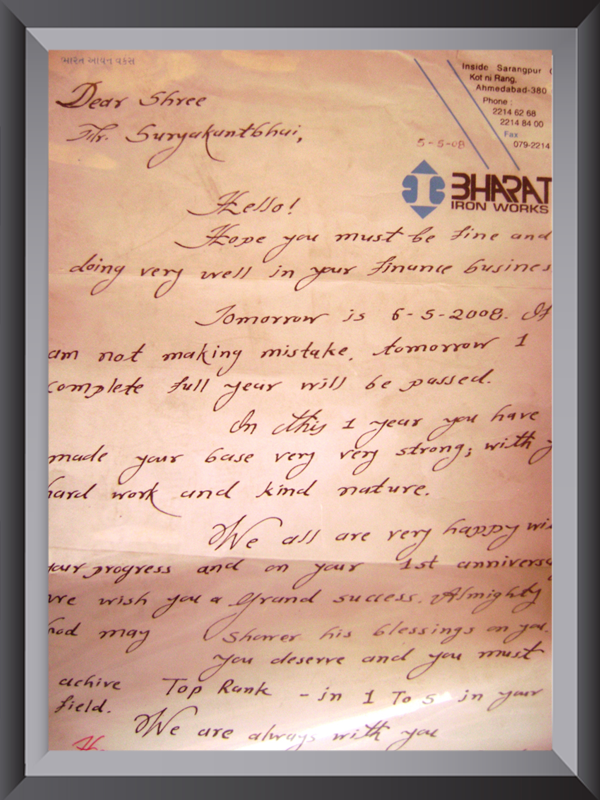 ભારત આયર્ન વર્ક્સ
Inside Sarangpur
Kot ni Rang,
Ahmedabad-380
Phone :
2214 62 68
2214 84 00
Fax
079-2214
5-5-08
BHARAT
IRON WORKS
Dear Shree
Mr. Suryakantbhai,
Hello!
Hope you must be fine and
doing very well in your finance busines
Tomorrow is 6-5-2008. If
am not making mistake, tomorrow 1
complete full year will be passed.
In this 1 year you have
made your base very very strong; with y
hard work and kind nature.
We all are very happy wi
your progress and on your 1st annivers
we wish you a Grand success. Almighty
God may shower his blessings on you.
you deserve and you must
achive Top Rank - in 1 To 5 in your
field.
We are always with you